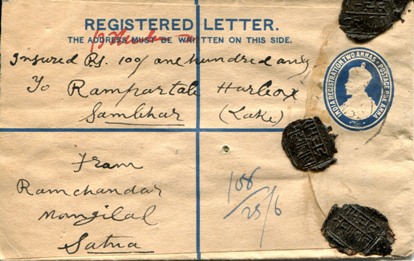 REGISTERED LETTER.
THE ADDRESS MUST BE WRITTEN ON THIS SIDE.
Insured Rs. 100/ one hundred only
To Rampartab Harbox
Sambhar (Lake)
INDIA REGISTRATION TWO ANNAS & POSTAGE ONE ANNA
From
Ramchandar
Mongilal
Satna
108
25/6